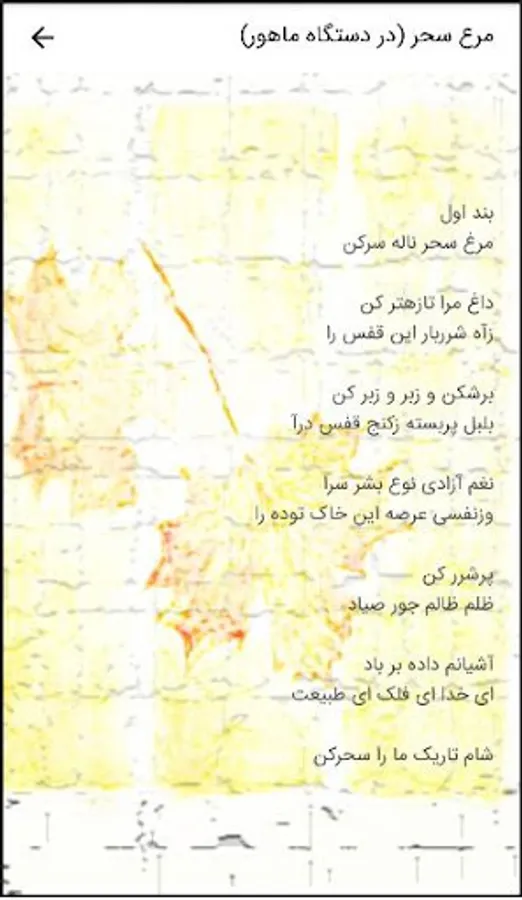 مرغ سحر (در دستگاه ماهور)
بند اول
مرغ سحر ناله سرکن
داغ مرا تازهتر کن
زآه شرربار این قفس را
برشکن و زیر و زبر کن
بلبل پربسته زکنج قفس درآ
نغم آزادی نوع بشر سرا
وزنفسی عرصه این خاک توده را
پرشرر کن
ظلم ظالم جور صیاد
آشیانم داده بر باد
ای خدا ای فلک ای طبیعت
شام تاریک ما را سحرکن